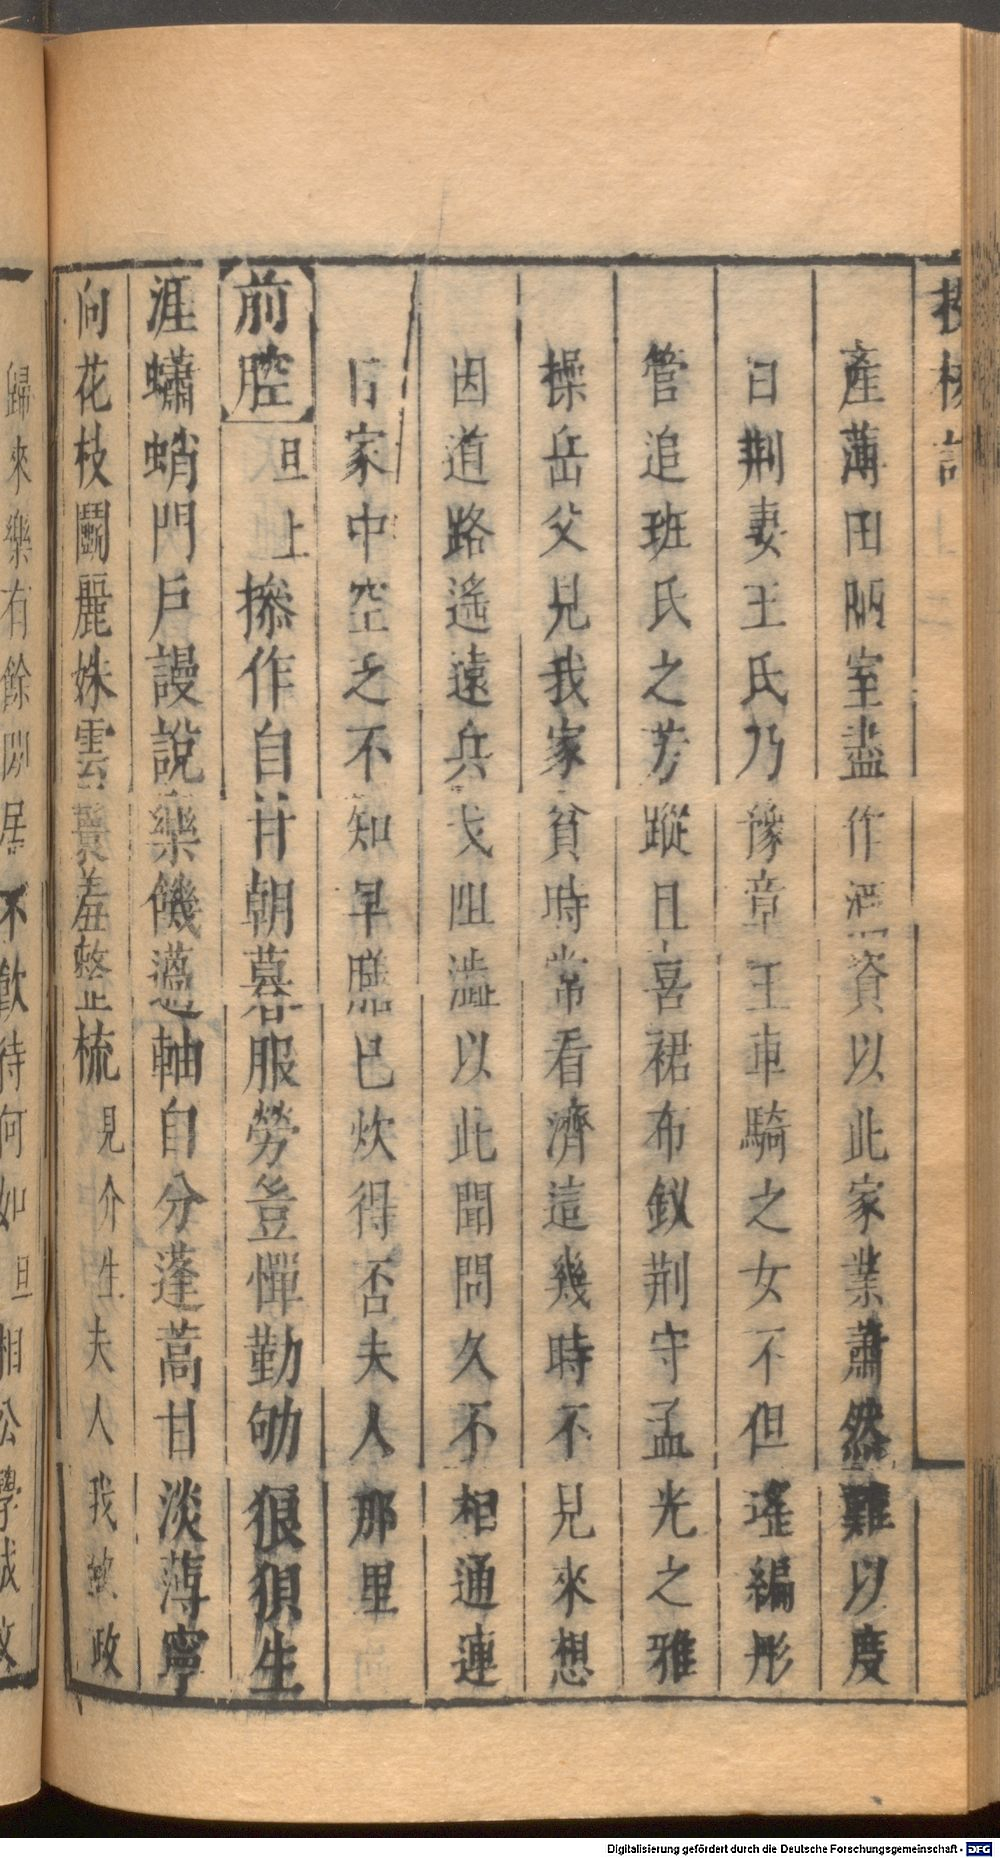 產薄田陋室盡作酒資以此家業蕭然難以度
日荆妻王氏乃豫章王車騎之女不但瑤編彤
管追班氏之芳蹤且喜裙布釵荆守孟光之雅
操岳父見我家貧時常看濟這幾時不見來想
因道路遙遠兵戈阻澁以此聞問久不相通連
日家中空乏不知早膳已炊得否夫人那里
前腔 旦上 摻作自甘朝暮服勞豈憚勤劬狠狽生
涯蠨蛸門戶謾說樂饑薖軸自分蓬蒿甘淡薄寧
向花枝鬬麗姝雲鬟羞整梳 見介生夫人我 政
歸來樂有餘閒居不飲待何如 旦 相公學
Digitalisierung gefördert durch die Deutsche Forschungsgemeinschaft - DFG